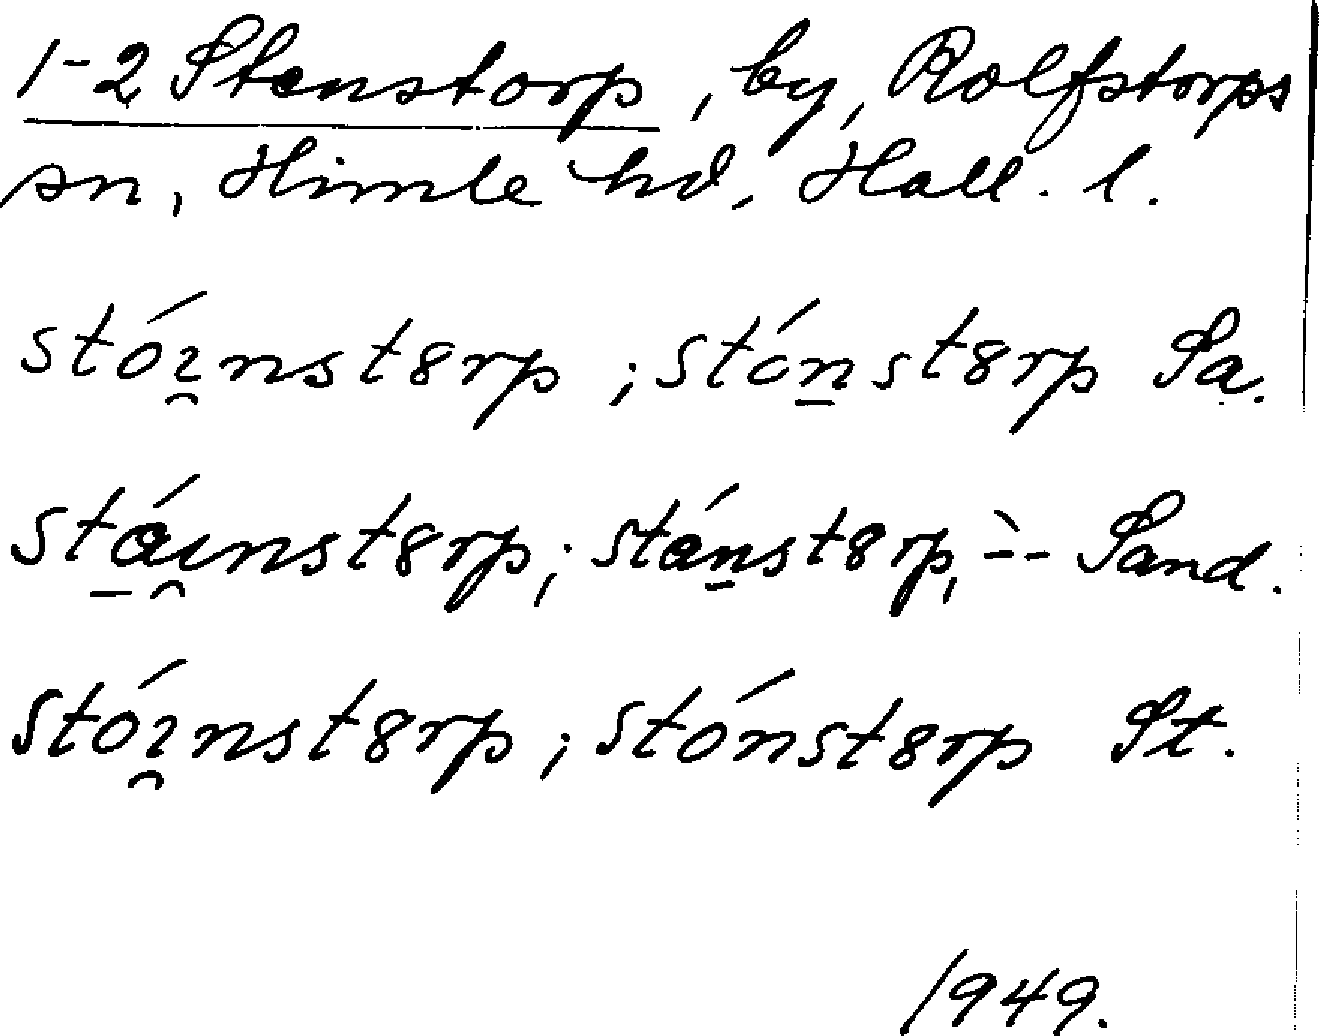 1-2 Stenstorp, by, Rolfstorps
sn, Himle hd, Hall. l.
stóı̯nst8rp; stón̠st8rp Sa.
st̠áı̯nst8rp; stán̠st8rp, -̀- Sand.
stóı̯nst8rp; stónst8rp St.
1949.